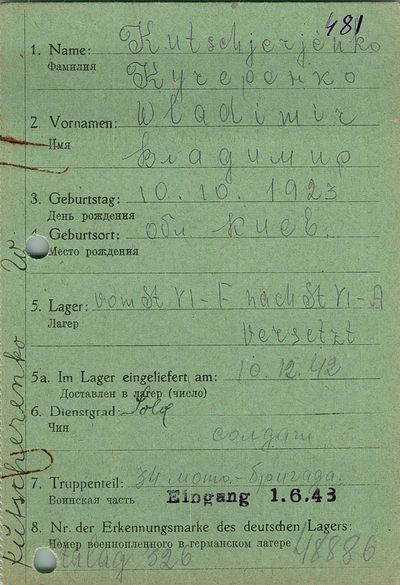 481
1. Name: Kutschjerjenko
Фамилия
Кучеренко
2. Vornamen: Wladimir
Имя
Владимир
3. Geburtstag: 10.10.1923
День рождения
4. Geburtsort: обл. Киев.
Место рождения
5. Lager: vom St VI-F nach St VI-A
Лагерь
versetzt
5a. Im Lager eingeliefert am: 10.12.42
Доставлен в лагер (число)
6. Dienstgrad: Sold
Чин
солдат
7. Truppenteil: 34 мото-бригада.
Воинская часть
Eingang 1.6.43
8. Nr. der Erkennungsmarke des deutschen Lagers:
Номер военнопленного в германском лагере 48886
Stalag 326
Kutscherenko W